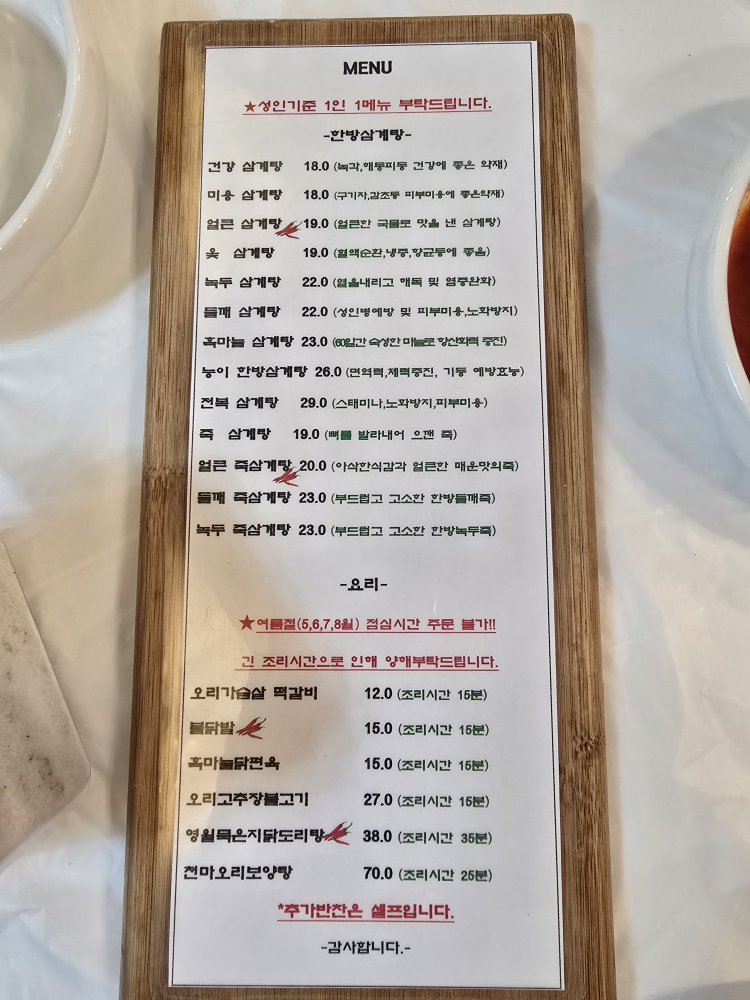 MENU
★성인기준 1인 1메뉴 부탁드립니다.
-한방삼계탕-
건강 삼계탕 18.0 (녹각,해동피등 건강에 좋은 약재)
미용 삼계탕 18.0 (구기자,감초등 피부미용에 좋은약재)
얼큰 삼계탕 19.0 (얼큰한 국물로 맛을 낸 삼계탕)
옻 삼계탕 19.0 (혈액순환,냉증,항균등에 좋음)
녹두 삼계탕 22.0 (열을내리고 해독 및 염증완화)
들깨 삼계탕 22.0 (성인병예방 및 피부미용,노화방지)
흑마늘 삼계탕 23.0 (60일간 숙성한 마늘로 항산화력 증진)
능이 한방삼계탕 26.0 (면역력,체력증진, 기등 예방효능)
전복 삼계탕 29.0 (스태미나,노화방지,피부미용)
죽 삼계탕 19.0 (뼈를 발라내어 으깬 죽)
얼큰 죽삼계탕 20.0 (아삭한식감과 얼큰한 매운맛의죽)
들깨 죽삼계탕 23.0 (부드럽고 고소한 한방들깨죽)
녹두 죽삼계탕 23.0 (부드럽고 고소한 한방녹두죽)
-요리-
★여름철(5,6,7,8월) 점심시간 주문 불가!!
긴 조리시간으로 인해 양해부탁드립니다.
오리가슴살 떡갈비 12.0 (조리시간 15분)
불닭발 15.0 (조리시간 15분)
흑마늘닭편육 15.0 (조리시간 15분)
오리고추장불고기 27.0 (조리시간 15분)
영월묵은지닭도리탕 38.0 (조리시간 35분)
천마오리보양탕 70.0 (조리시간 25분)
*추가반찬은 셀프입니다.
-감사합니다.-